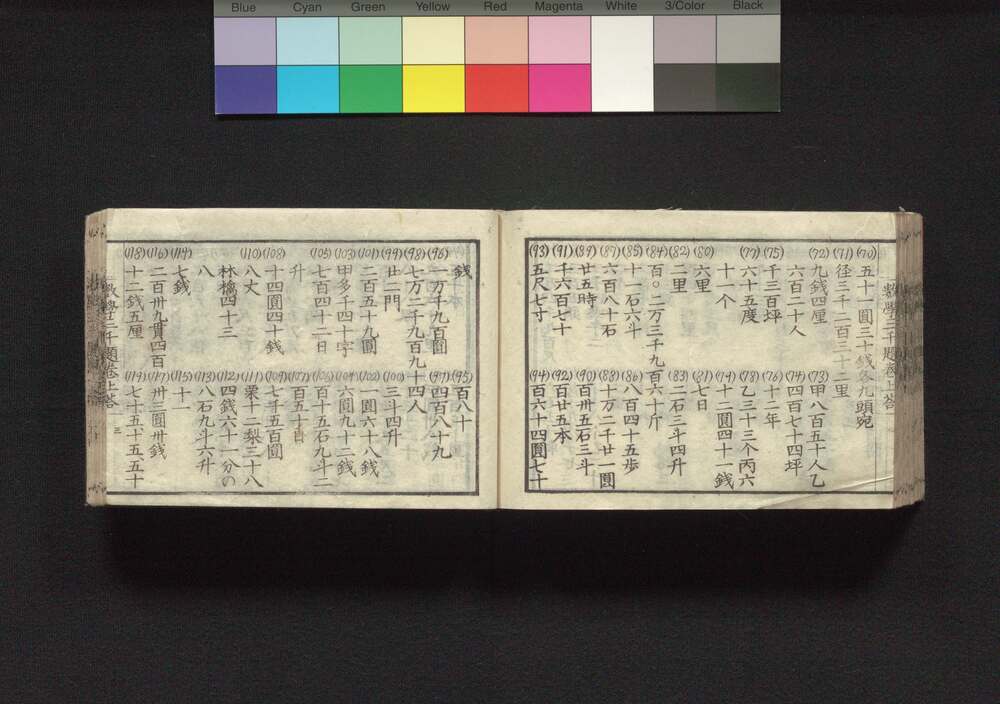 Blue Cyan Green Yellow Red Magenta White 3/Color Black
數學三千題卷上答
(70) 五十一圓三十錢冬九頭宛
(71) 径三千二百三十二里
(72) 九錢四厘 (73) 甲八百五十人乙
六百二十人 (74) 四百七十四坪
(75) 千三百坪 (76) 十一年
(77) 六十五度 (78) 乙三十三个丙六
十一个 (79) 十二圓四十一錢
(80) 六里 (81) 七日
(82) 二里 (83) 二石三斗四升
(84) 百〇二万三千九百六十斤
(85) 十一石六斗 (86) 八百四十五歩
(87) 六百八十石 (88) 十万二千廿一圓
(89) 廿五時 (90) 百卅五石三斗
(91) 千六百七十 (92) 百廿五本
(93) 五尺七寸 (94) 百六十四圓七十
錢 (95) 百八十
(96) 一万千九百圓 (97) 四百八十九
(98) 七万二千九百九十四人
(99) 廿二門 (100) 三斗四升
(101) 二百五十九圓 (102) 一圓六十八錢
(103) 甲多千四十字 (104) 六圓九十二錢
(105) 七百四十二日 (106) 百十五石九斗二
升 (107) 百五十日
(108) 十四圓四十錢 (109) 七千五百圓
(110) 八丈 (111) 栗十二梨三十八
林檎四十三 (112) 四錢六十一分の
八 (113) 八石九斗六升
(114) 七錢 (115) 十一
(116) 二百卅九貫四百 (117) 卅三圓卅錢
(118) 十二錢五厘 (119) 七十五十五五十
數學三千題卷上答 三